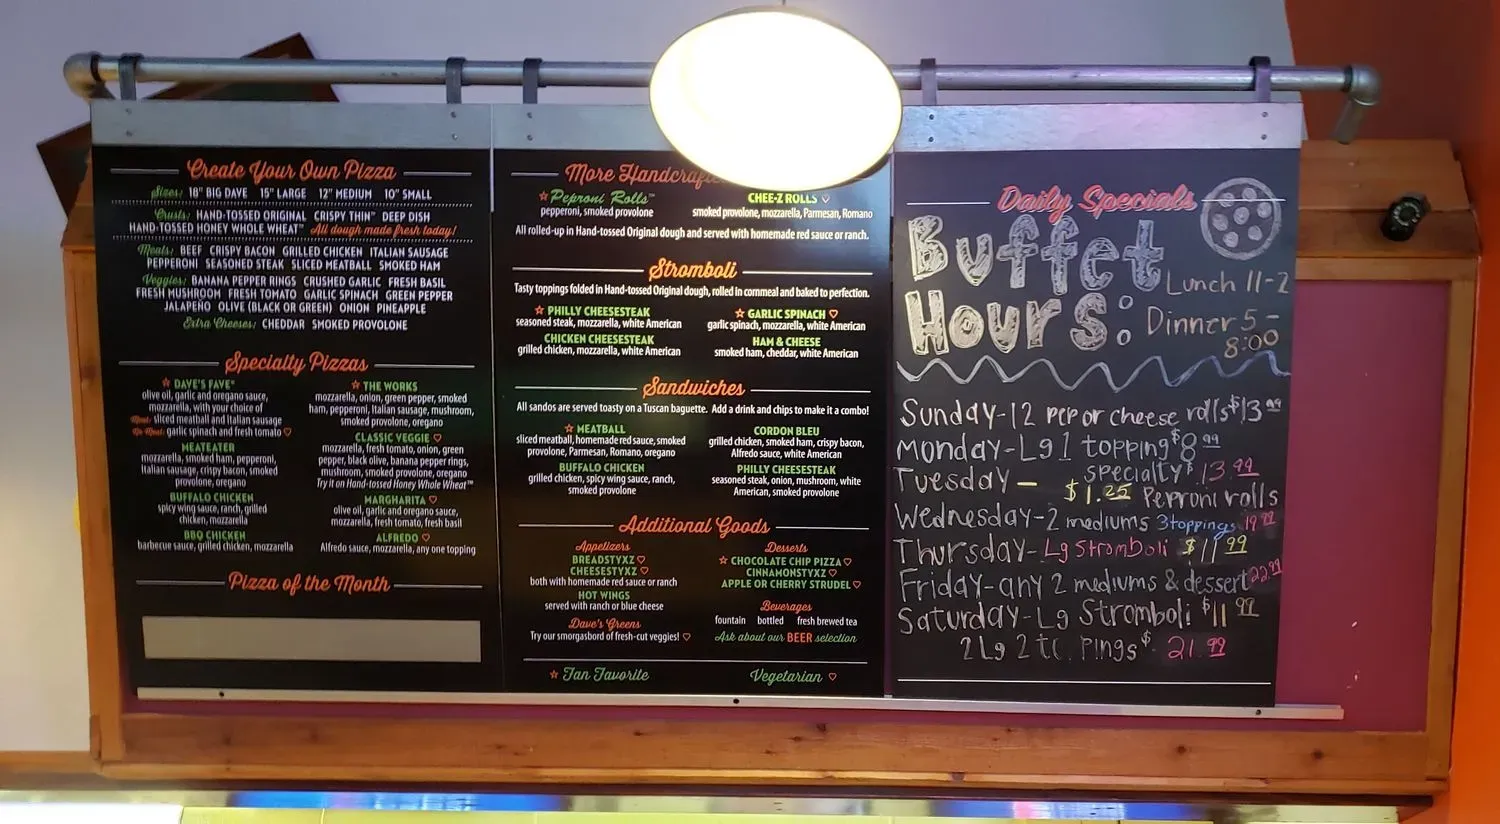 Create Your Own Pizza
Sizes: 18" BIG DAVE 15" LARGE 12" MEDIUM 10" SMALL
Crusts: HAND-TOSSED ORIGINAL CRISPY THIN™ DEEP DISH
HAND-TOSSED HONEY WHOLE WHEAT™ All dough made fresh today!
Meats: BEEF CRISPY BACON GRILLED CHICKEN ITALIAN SAUSAGE
PEPPERONI SEASONED STEAK SLICED MEATBALL SMOKED HAM
Veggies: BANANA PEPPER RINGS CRUSHED GARLIC FRESH BASIL
FRESH MUSHROOM FRESH TOMATO GARLIC SPINACH GREEN PEPPER
JALAPEÑO OLIVE (BLACK OR GREEN) ONION PINEAPPLE
Extra Cheeses: CHEDDAR SMOKED PROVOLONE
Specialty Pizzas
☆ DAVE'S FAVE®
olive oil, garlic and oregano sauce,
mozzarella, with your choice of
Meat: sliced meatball and Italian sausage
No Meat: garlic spinach and fresh tomato ♡
MEATEATER
mozzarella, smoked ham, pepperoni,
Italian sausage, crispy bacon, smoked
provolone, oregano
BUFFALO CHICKEN
spicy wing sauce, ranch, grilled
chicken, mozzarella
BBQ CHICKEN
barbecue sauce, grilled chicken, mozzarella
☆ THE WORKS
mozzarella, onion, green pepper, smoked
ham, pepperoni, Italian sausage, mushroom,
smoked provolone, oregano
CLASSIC VEGGIE ♡
mozzarella, fresh tomato, onion, green
pepper, black olive, banana pepper rings,
mushroom, smoked provolone, oregano
Try it on Hand-tossed Honey Whole Wheat™
MARGHARITA ♡
olive oil, garlic and oregano sauce,
mozzarella, fresh tomato, fresh basil
ALFREDO ♡
Alfredo sauce, mozzarella, any one topping
Pizza of the Month
More
☆ Peproni Rolls™
pepperoni, smoked provolone
CHEE-Z ROLLS ♡
smoked provolone, mozzarella, Parmesan, Romano
All rolled-up in Hand-tossed Original dough and served with homemade red sauce or ranch.
Stromboli
Tasty toppings folded in Hand-tossed Original dough, rolled in cornmeal and baked to perfection.
☆ PHILLY CHEESESTEAK
seasoned steak, mozzarella, white American
CHICKEN CHEESESTEAK
grilled chicken, mozzarella, white American
☆ GARLIC SPINACH ♡
garlic spinach, mozzarella, white American
HAM & CHEESE
smoked ham, cheddar, white American
Sandwiches
All sandos are served toasty on a Tuscan baguette. Add a drink and chips to make it a combo!
☆ MEATBALL
sliced meatball, homemade red sauce, smoked
provolone, Parmesan, Romano, oregano
BUFFALO CHICKEN
grilled chicken, spicy wing sauce, ranch,
smoked provolone
CORDON BLEU
grilled chicken, smoked ham, crispy bacon,
Alfredo sauce, white American
PHILLY CHEESESTEAK
seasoned steak, onion, mushroom, white
American, smoked provolone
Additional Goods
Appetizers
BREADSTYXZ ♡
CHEESESTYXZ ♡
both with homemade red sauce or ranch
HOT WINGS
served with ranch or blue cheese
Dave's Greens
Try our smorgasbord of fresh-cut veggies! ♡
Desserts
☆ CHOCOLATE CHIP PIZZA ♡
CINNAMONSTYXZ ♡
APPLE OR CHERRY STRUDEL ♡
Beverages
fountain bottled fresh brewed tea
Ask about our BEER selection
☆ Fan Favorite
Vegetarian ♡
Daily Specials
Buffet
Hours:
Lunch 11-2
Dinner 5-
8:00
Sunday-12 pep or cheese rolls $13.99
Monday-Lg 1 topping $8.99
Tuesday - specialty $13.99
$1.25 Peproni rolls
Wednesday-2 mediums 3toppings 19.99
Thursday-Lg Stromboli $11.99
Friday-any 2 mediums & dessert 22.99
Saturday-Lg Stromboli $11.99
2 Lg 2 $ 21.99